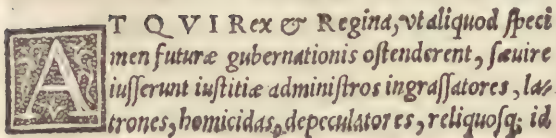 AT QVI Rex & Regina, vt aliquod ſpeci
men futuræ gubernationis oſtenderent, ſæuire
iuſſerunt iuſtitiæ adminiſtros ingraſſatores, la-
trones, homicidas, depeculatores, reliquoſq; id